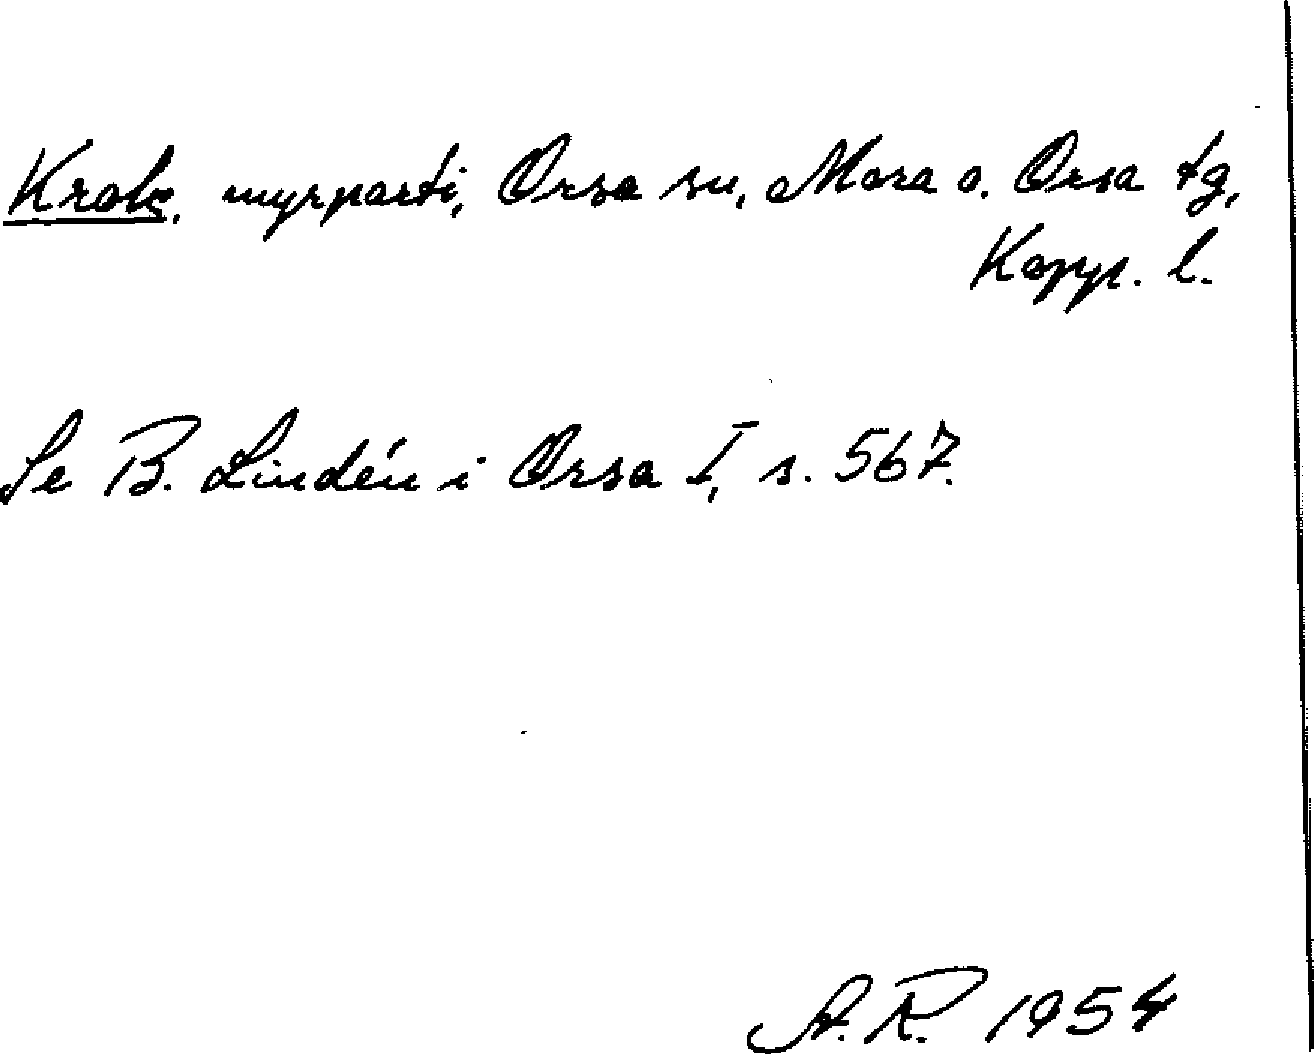 Krok, myrparti, Orsa sn, Mora o. Orsa tg,
Kopp. l.
Se B. Lindén i Orsa I, s. 567.
A. R. 1954